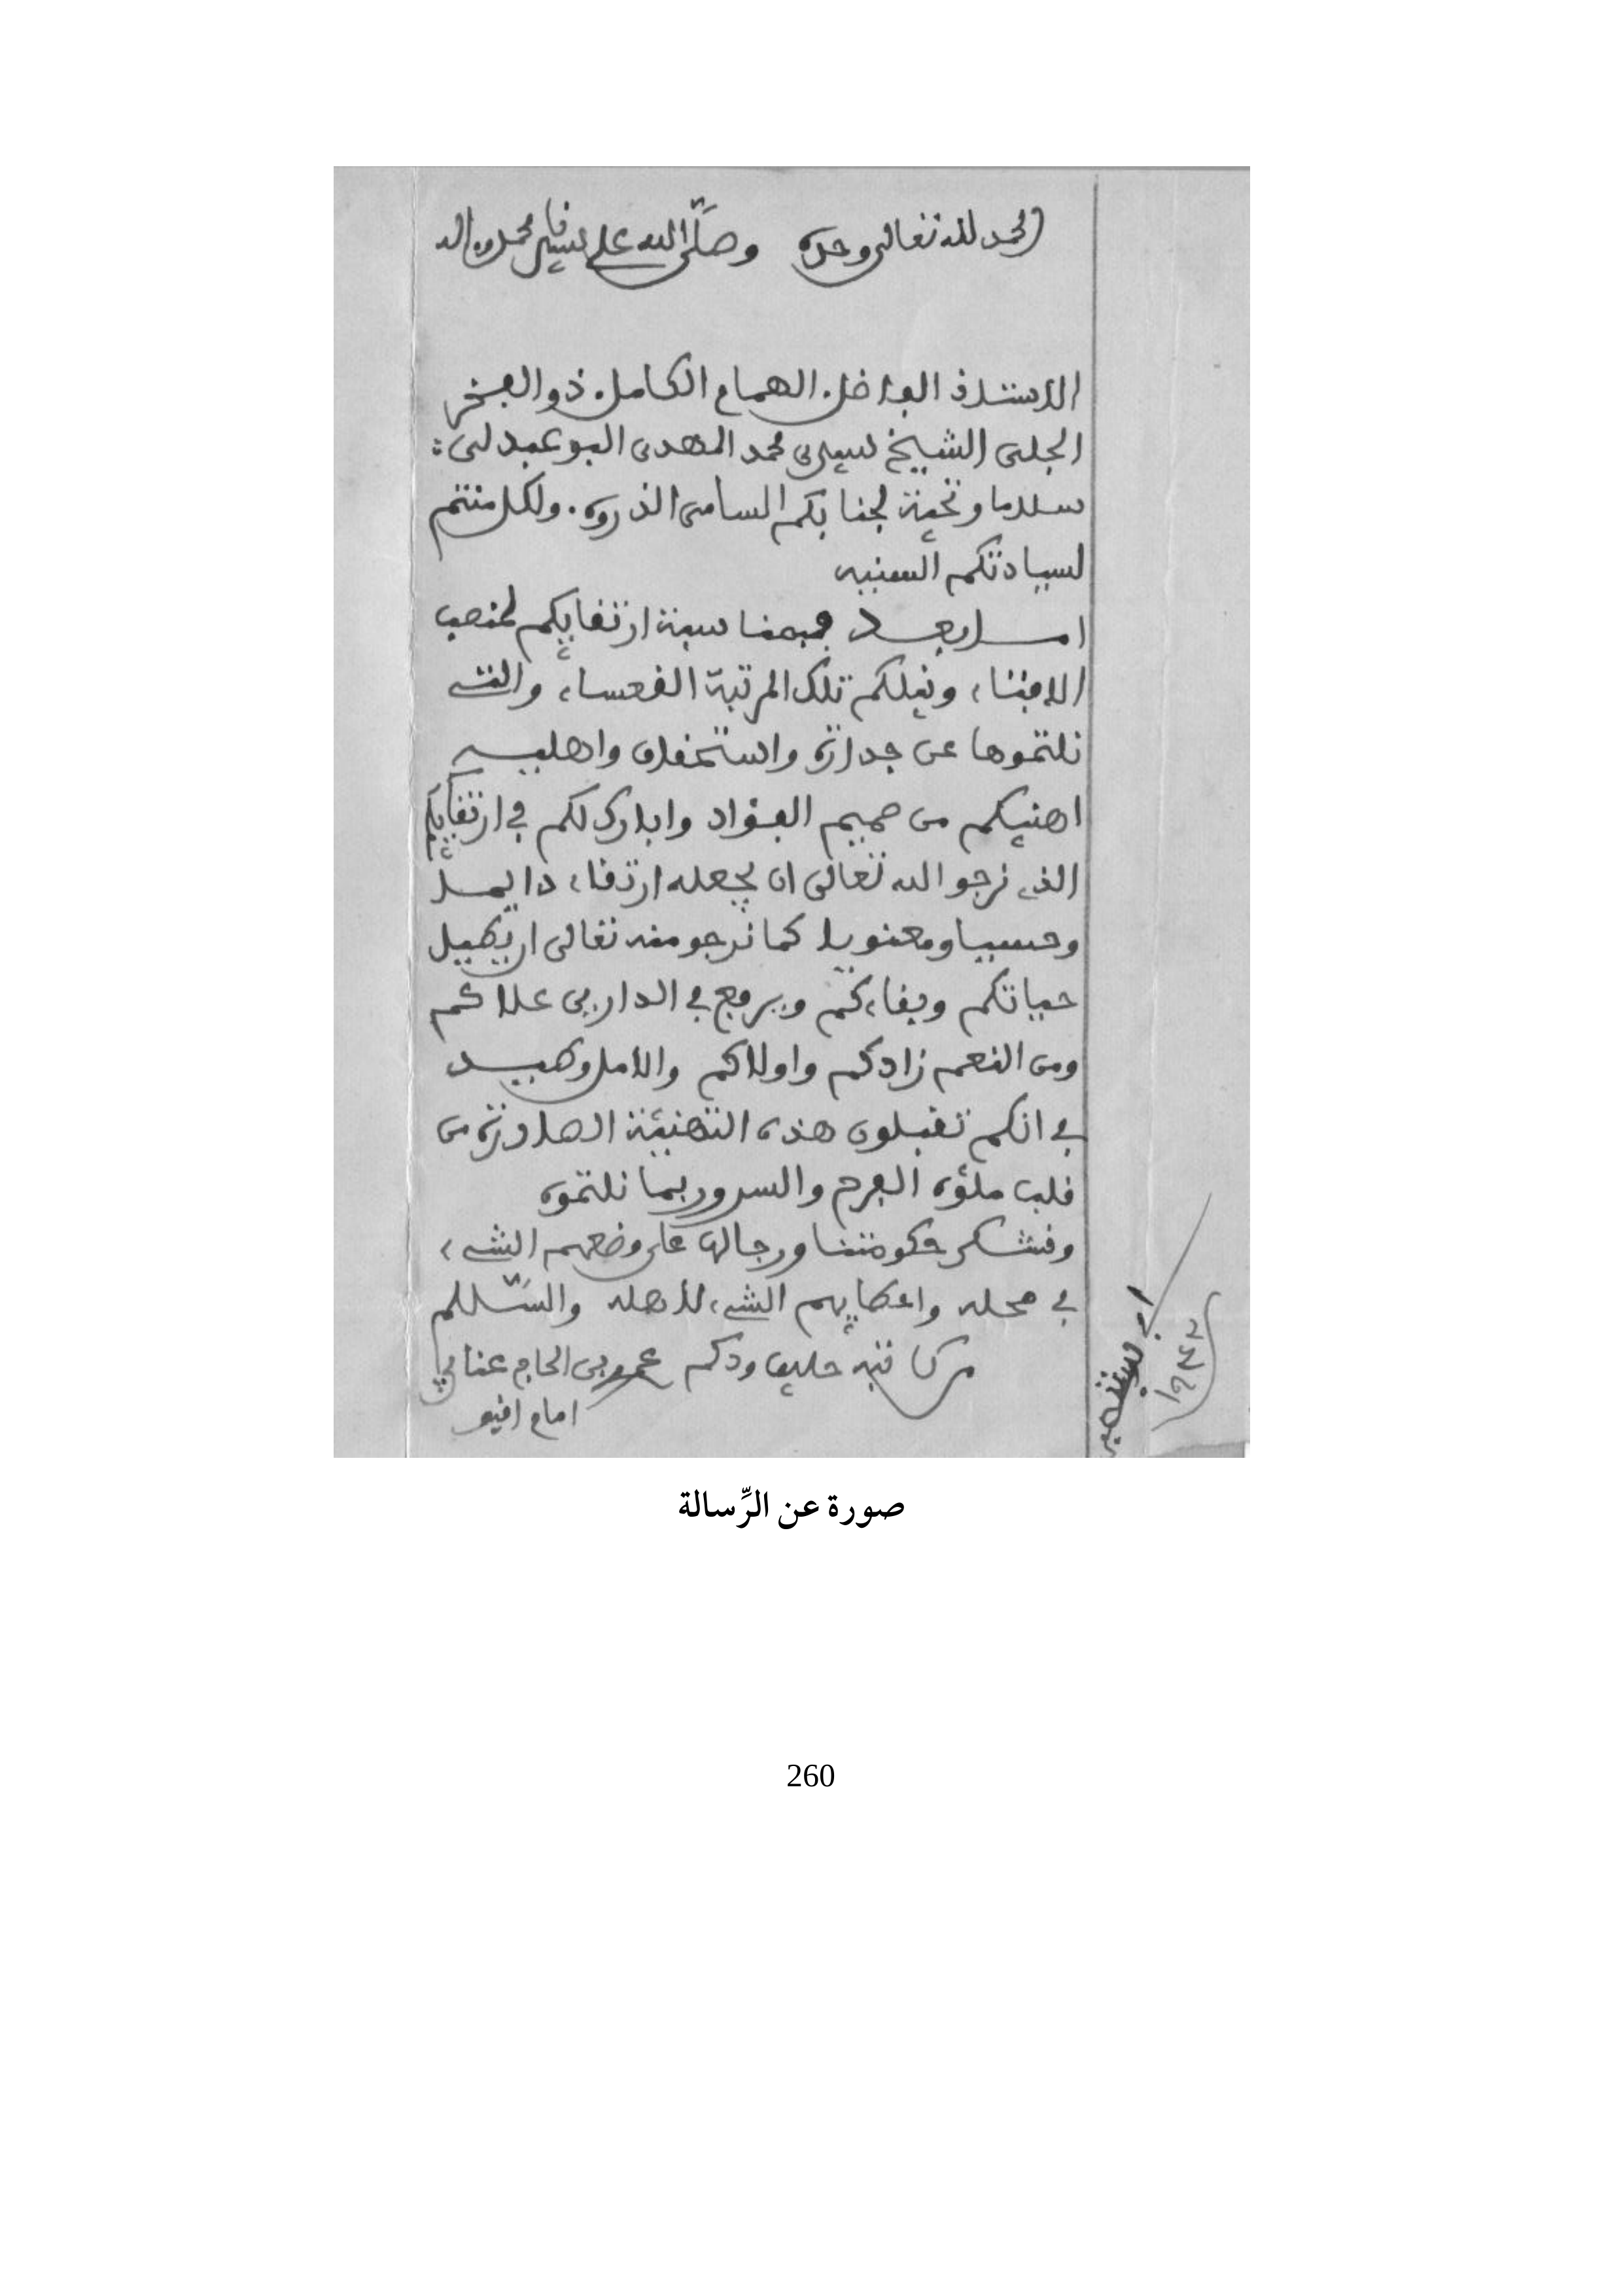 الحمد لله تعالى وحده وصلّى الله على سيدنا محمد وءاله
الأستاذ الفاضل. الهمام الكامل. ذو الفخر
الجلي الشيخ سيدي محمد المهدي البوعبدلي:
سلاما وتحية لجنابكم السامي الذروه. ولكل منتم
لسيادتكم السنيه
امـا بعـد فبمناسبة ارتقايكم لمنصب
الافتاء، ونيلكم تلك المرتبة القعساء، والتى
نلتموها عن جدارة واستحقاق واهليه
اهنيكم من صميم الفؤاد وابارك لكم في ارتقايكم
الذي نرجو الله تعالى ان يجعله ارتقاء دايما
وحسيا ومعنويا كما نرجو منه تعالى ان يطيل
حياتكم وبقاءكم ويرفع في الدارين علاكم
ومن النعم زادكم واولاكم والأمل وطيد
في انكم تقبلون هذه التهنئة الصادرة من
قلب ملؤه الفرح والسرور بما نلتموه
ونشكر حكومتنا ورجالها على وضعهم الشيء
في محله واعطايهم الشيء لأهله والسّلام
من كاتبه حليف ودكم عمر بن الحاج عنابي
امام افلو
صورة عن الرِّسالة
260